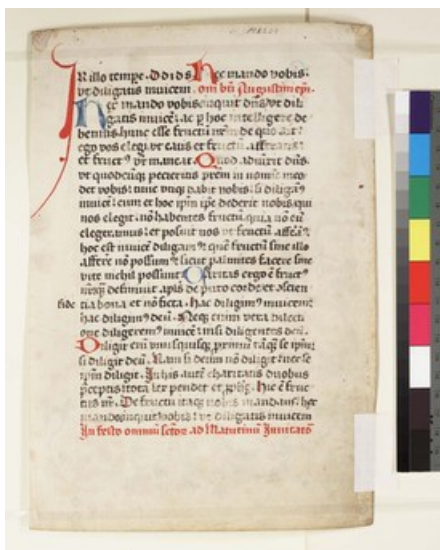 In illo tempore. d d i d s Hec mando vobis.
vt diligatis inuicem. om bti Augustini epi.
Hec mando vobis inquit dns vt dili
gatis inuice: ac p hoc intelligere de
bemus. hunc esse fructu nrm de quo ait:
ego vos elegi vt eatis et fructu afferatis:
et fruct9 vr maneat. Quod adiunxit dns.
vt quodcuq3 pecieritis prem in nomine meo
det vobis: tunc vtiq3 dabit nobis. si diligam9
inuice: cum et hoc ipm ipe dederit nobis. qui
nos elegit. no habentes fructu. quia no eu
elegeramus: et posuit nos vt fructu afferam9
hoc est inuice diligam9 que fructu sine illo
afferre no possum9 sicut palmites facere sine
vite nichil possunt Caritas ergo e fruct9
nr. qua definiuit apls de puro corde et scien
fide tia bona et no ficta. Hac diligim9 inuicem:
hac diligim9 deu. Neq3 enim vera dilecti
one diligerem9 inuice: nisi diligentes deu.
Diligit eni vnusquisq3 primu taq3 se ipm:
si diligit deu. Nam si deum no diligit: nec se
ipm diligit. In his aute charitatis duobus
preceptis tota lex pendet et pphe. Hic e fruc
tus nr. De fructu itaq3 nobis mandans: hec
mando inquit vobis: vt diligatis inuicem
In festo omniu sctor ad Matutinu Inuitato